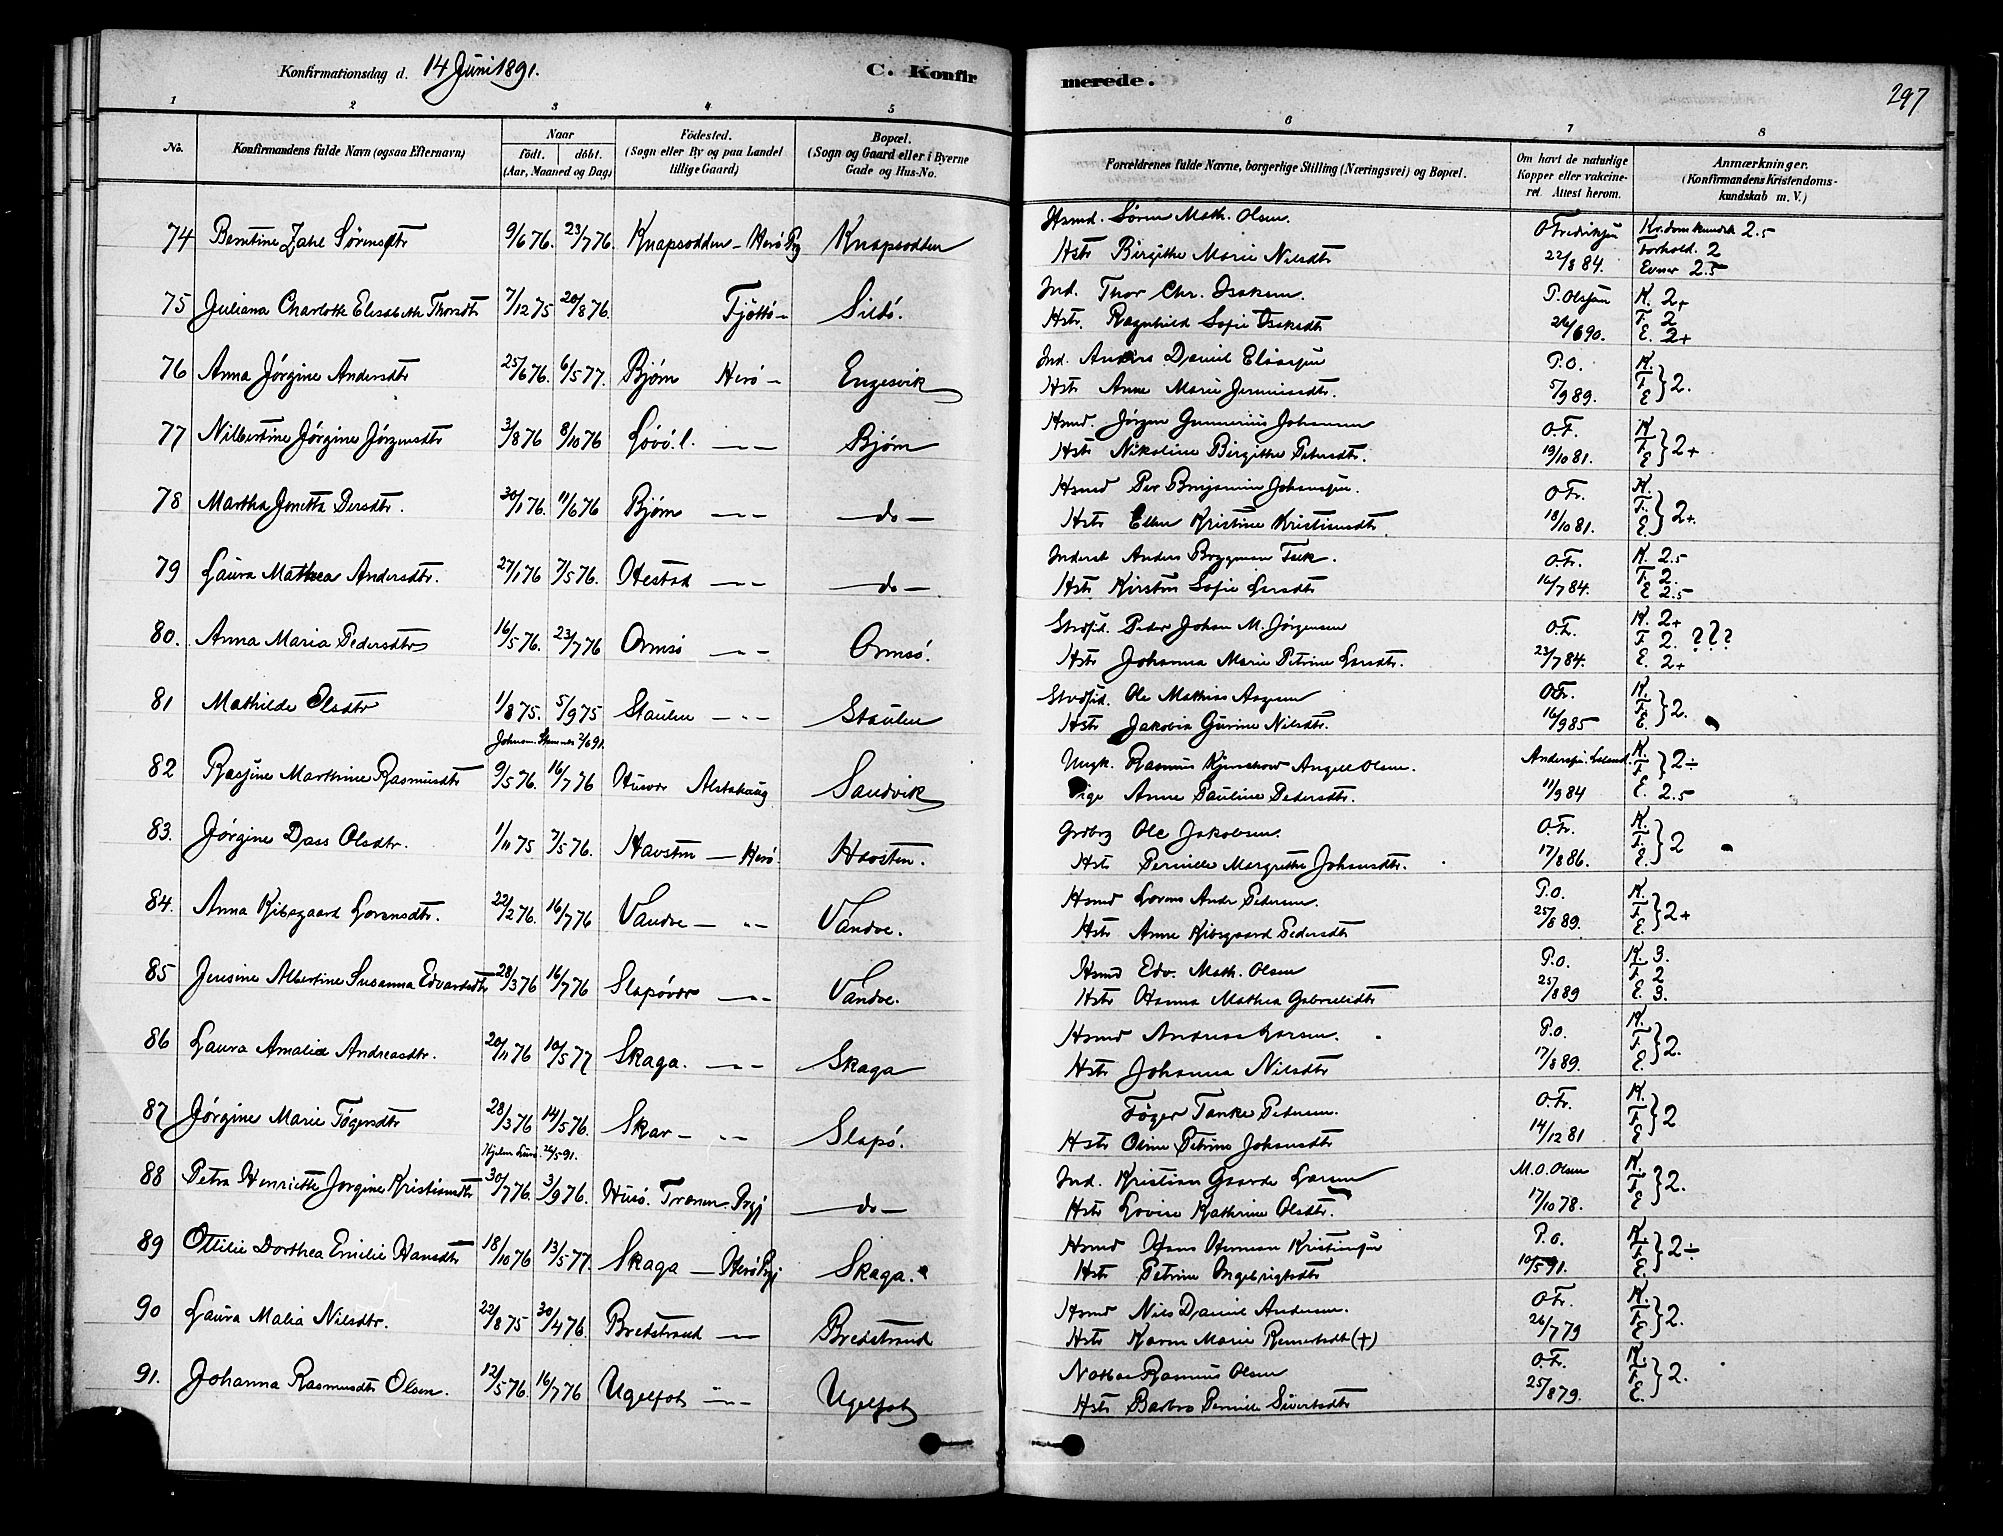 Konfirmationsdag d. 14 Juni 1891. C. Konfirmerede. 297
1 2 3 4 5 6 7 8
No. Konfirmandens fulde Navn (ogsaa Efternavn) Naar födt. döbt. (Aar, Maaned og Dag) Födested. (Sogn eller By og paa Landet tillige Gaard) Bopæl. (Sogn og Gaard eller i Byerne Gade og Hus-No. Forældrenes fulde Navne, borgerlige Stilling (Næringsvei) og Bopæl. Om havt de naturlige Kopper eller vakcineret. Attest herom. Anmærkninger. (Konfirmandens Kristendomskundskab m. V.)
74 Berntine Zahl Sørensdtr 9/6 76. 23/7 76. Knapsodden - Herø Pg Knapsodden Hsmd. Sören Math. Olsen. O Fredriksen Kr.domskundsk 2.5
Hstr Birgithe Marie Nilsdtr 22/8 84. Forhold. 2 Evner 2.5
75 Juliana Charlotte Elisabeth Thorsdtr 7/12 75 20/8 76. Tjöttö - Sildö. Ind. Thor Chr. Isaksen. P. Olsen K. 2+
Hstr. Ragnhild Sofie Isaksdtr 26/6 90. F. 2 E. 2+
76 Anna Jörgine Andersdtr 25/6 76. 6/5 77. Bjørn Herö - Engesvik Ind. Anders Daniel Eliassen P.O. K. F. E } 2.
Hstr Anne Marie 5/9 89.
77 Nilbertine Jörgine Jörgensdtr 3/8 76 8/10 76 Lövö. l. - " - Bjørn Hsmd. Jörgen Gunnerius Johansen O.F. K F. E } 2+
Hstr Nikoline Birgithe Petersdtr. 19/10 81.
78 Martha Jonetta Persdtr. 30/1 76. 11/6 76 Bjørn - " - - do - Hsmd Per Benjamin Johansen. O Fr. K. F. E } 2+.
Hstr Ellen Kristine Kristiansdtr 18/10 81.
79 Laura Mathea Andersdtr. 27/1 76 7/5 76. Otestad - " - - do - Inderst Anders Brygman Falk. O.Fr. K. 2.5
Hstr. Kirsten Sofie Larsdtr 16/7 84. F. 2. E 2.5
80. Anna Maria Pedersdtr 16/5 76. 23/7 76 Ormsö - " - Ormsö. Strdsid. Peder Johan M. Jörgensen O.F. K. 2+
Hstr Johanna Marie Petrine Larsdtr. 23/7 84. F. 2. ??? E. 2+
81 Mathilde Olsdtr 1/8 75. 5/9 75 Staulen - " - Staulen Strdsid. Ole Mathias O.Fr. K. F. E } 2.
Hstr Jakobia Gurine Nilsdtr. 16/9 85
82 Rasjine Marthine Rasmusdtr 9/5 76. 16/7 76 Alstahaug Sandvik Ungk. Rasmus Angell Olsen. K. F } 2÷
Pige Anne Pauline Pedersdtr. 11/9 84 E. 2.5
83. Jörgine Dass Olsdtr. 1/11 75 7/5 76. Havsten - Herö. Havsten. Grdbrg Ole Jakobsen. O.Fr. K. F. E. } 2
Hstr Pernille Margrethe Johansdtr. 17/8 86.
84. Anna Kibsgaard Lorensdtr. 22/2 76. 16/7 76 Vandve - " - Vandve. Hsmd Lorens Andr Pedersen. P.O. K. F. E. } 2+
Hstr Anne Kibsgaard Pedersdtr 25/8 89.
85 Jensine Albertine Susanna Edvardsdtr 28/3 76 16/7 76 Slapövær - " - Vandve. Hsmd Edv. Math. Olsen P.O. K. 3.
Hstr Hanna Mathea Gabrielsdtr 25/8 89 F. 2 E. 3.
86 Laura Amalia Andreasdtr. 20/11 76 10/5 77 Skaga. - " - Skaga Hsmd Andreas Larsen. P.O. K. F. E. } 2.
Hstr Johanna Nilsdtr 17/8 89.
87 Jörgine Marie Tögersdtr 28/3 76 14/5 76. Skar - " - Slapö. Töger Tanke Pedersen. O.Fr. K. F. E } 2
Hstr Oline Petrine Johansdtr 14/12 81
88 Petra Henriette Jorgine Kristiansdtr 30/7 76. 3/9 76. Husö. Trænen. Prgj - do - Ind. Kristian Gaarde Larsen M.O. Olsen K. F. E } 2.
Hstr Lovise Kathrine Olsdtr. 17/10 78.
89 Ottilie Dorthea Emilie Hansdtr 18/10 76 13/5 77. Skaga - Herö Prgj Skaga. Hsmd Hans Herman Kristiansen P.O. K. F. E. } 2÷
Hstr Petrine Ingebrigtsdtr 10/5 91.
90 Laura Malia Nilsdtr. 22/8 75 30/4 76. Bredstrand - " - Bredstrand Hsmd Nils Daniel Andersen. O Fr. K. F. E. } 2.
Hstr Karen Marie Reinertsdtr (+) 26/7 79
91. Johanna Rasmusdtr Olsen. 12/5 76. 16/7 76 Ugelfot - " - Ugelfot Rasmus Olsen O.Fr. K. F. E. } 2.
Hstr Barbro Pernille Sivertsdtr 25/8 79.